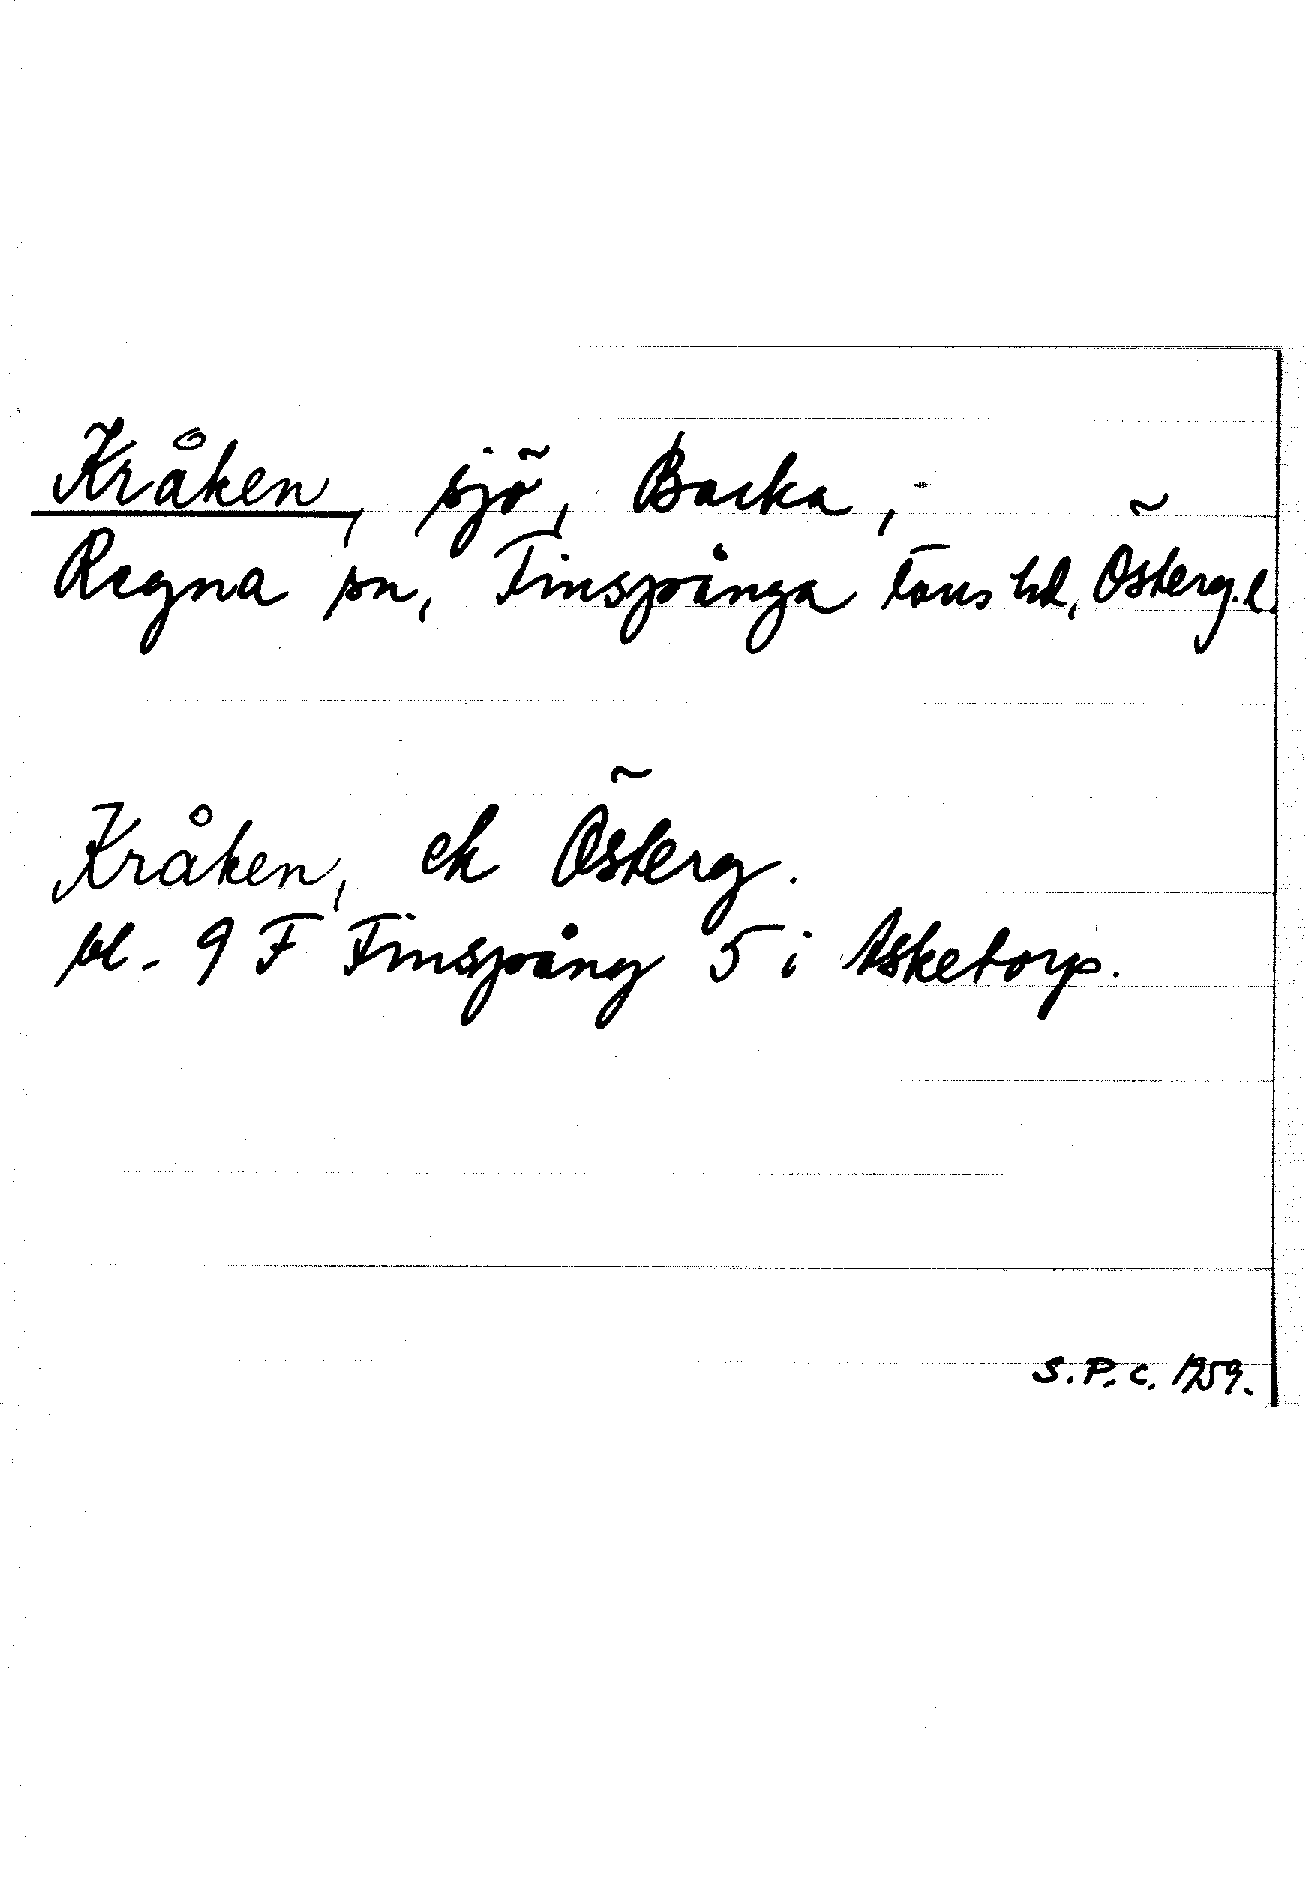 Kråken, sjö, Backa,
Regna sn, Finspånga läns hd, Österg. l.
Kråken, ek Österg.
bl. 9 F Finspång 5 i Asketorp.
S.P.C. 1959.